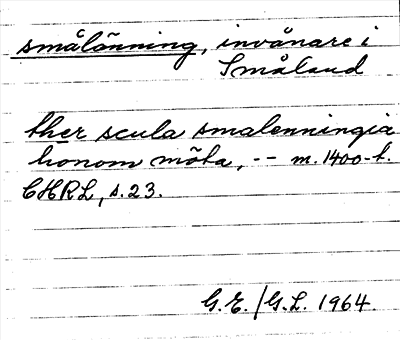 smålänning, invånare i
Småland
ther scula smalenningia
honom möta, -- m. 1400-t.
CHRL, s. 23.
G.E./G.L. 1964.